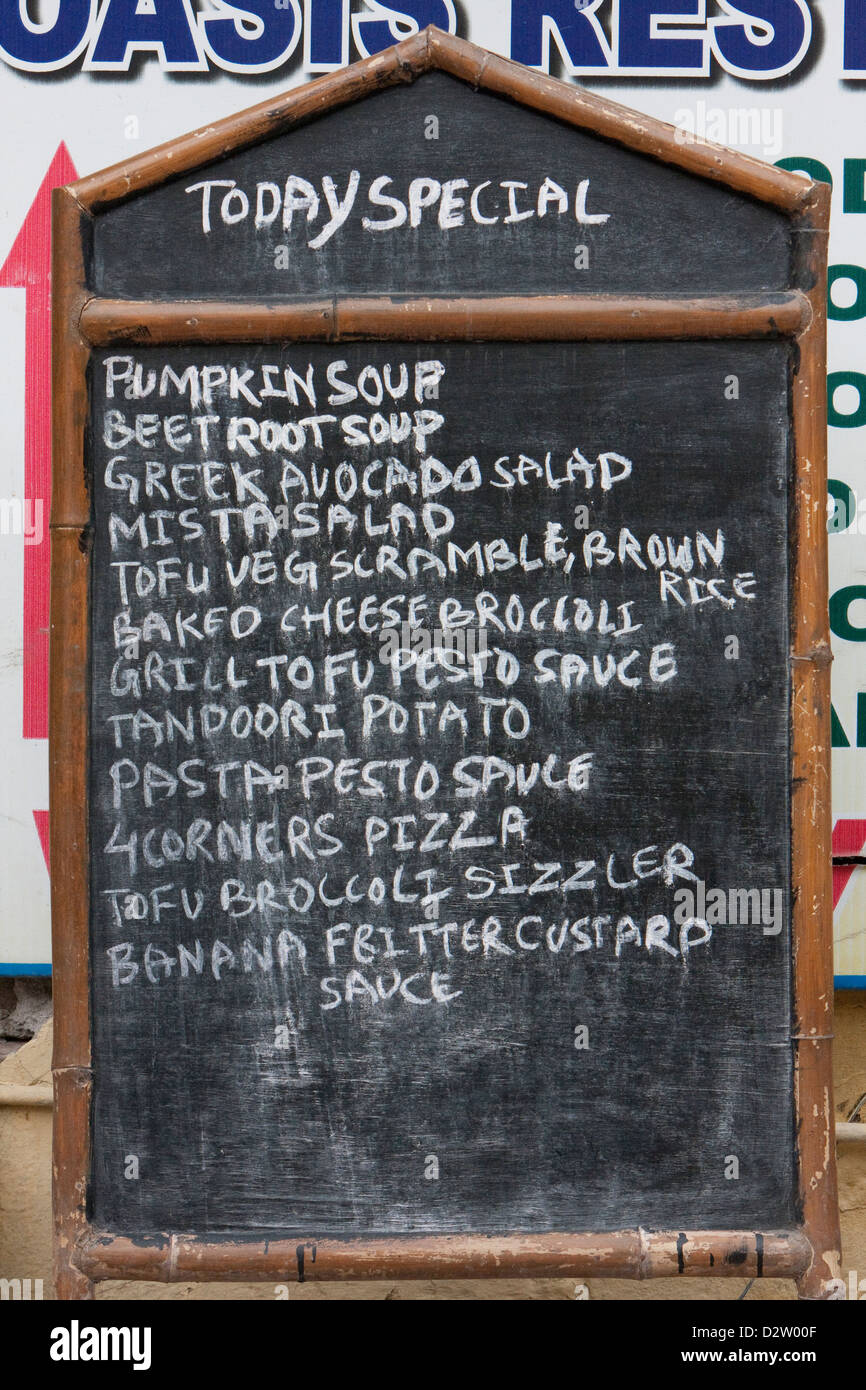 OASIS REST
TODAY SPECIAL
PUMPKIN SOUP
BEET ROOT SOUP
GREEK AVOCADO SALAD
MISTA SALAD
TOFU VEG SCRAMBLE, BROWN
RICE
BAKED CHEESE BROCCOLI
GRILL TOFU PESTO SAUCE
TANDOORI POTATO
PASTA PESTO SAUCE
4 CORNERS PIZZA
TOFU BROCCOLI SIZZLER
BANANA FRITTER CUSTARD
SAUCE
alamy
Image ID: D2W00F
www.alamy.com